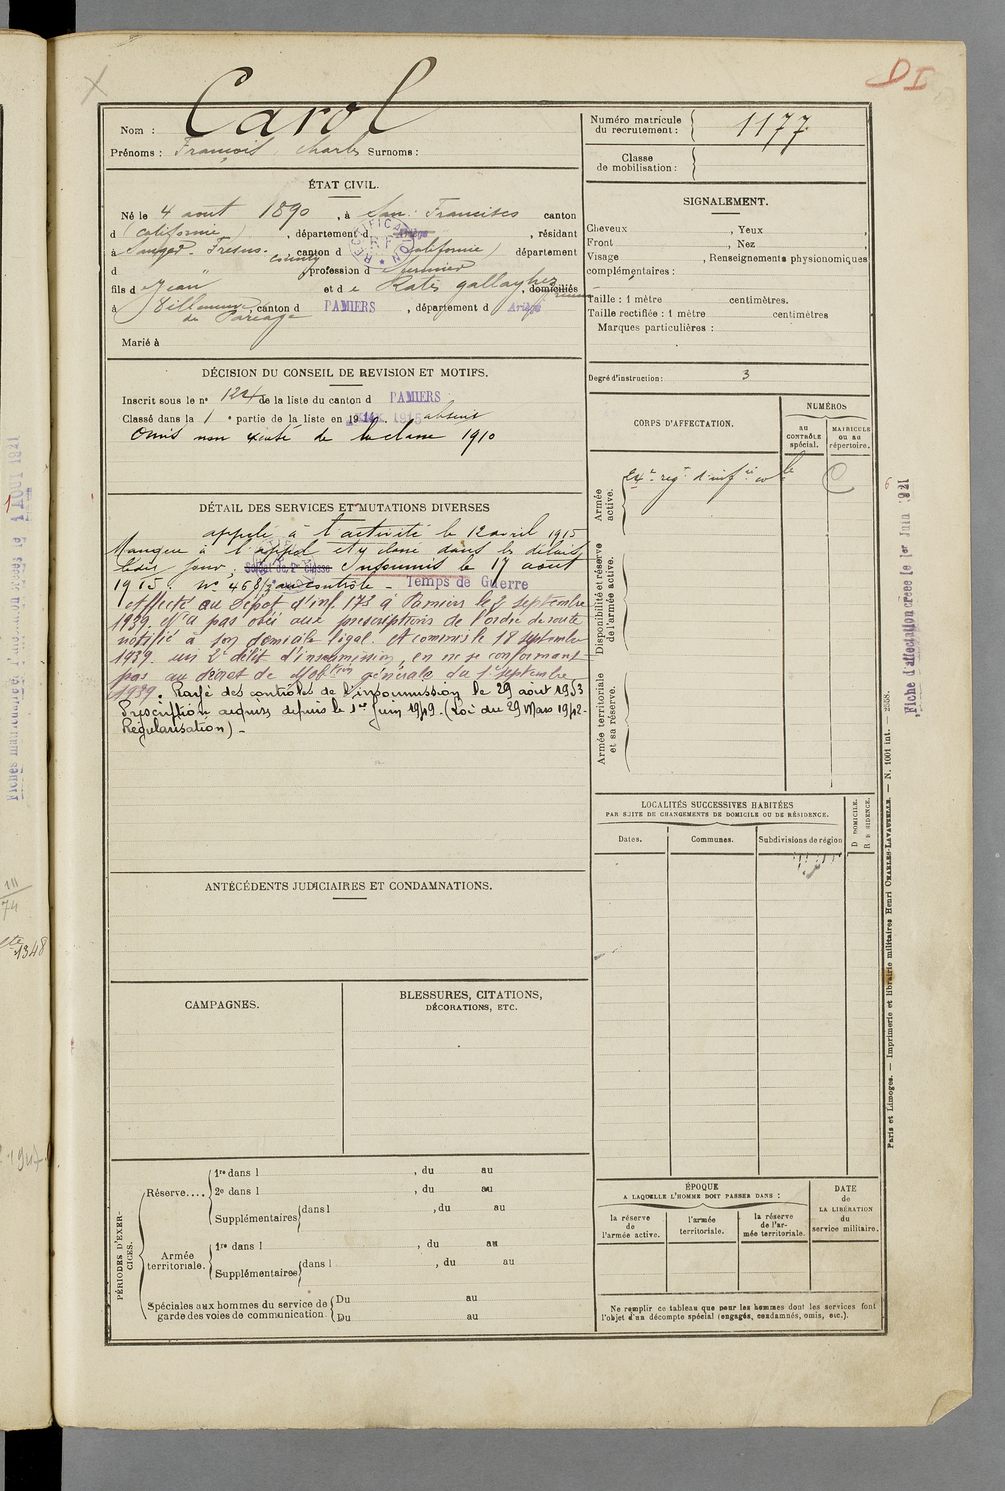 DI
Nom : Carol
Prénoms : François, Charles Surnoms :
Numéro matricule du recrutement : 1177
Classe de mobilisation :
ÉTAT CIVIL.
Né le 4 aout 1890, à San Francisco canton
d (Californie), département d Ariège, résidant
à Sanger. Fresno. County canton d (Californie) département
d " profession d fermier
fils d e Jean et d e Katis gallagher, domiciliés
à Villeneuve du Paréage, canton d PAMIERS, département d Ariège
Marié à
RECTIFICATION
RF
SIGNALEMENT.
Cheveux , Yeux ,
Front , Nez ,
Visage , Renseignements physionomiques
complémentaires :
Taille : 1 mètre centimètres.
Taille rectifiée : 1 mètre centimètres
Marques particulières :
Degré d'instruction : 3
DÉCISION DU CONSEIL DE REVISION ET MOTIFS.
Inscrit sous le n° 124 de la liste du canton d PAMIERS
Classé dans la 1e partie de la liste en 19 1915 absent
Omis non excusé de la classe 1910
DÉTAIL DES SERVICES ET MUTATIONS DIVERSES
appelé à l'activité le 12 avril 1915
Manquu à l'appel et y clone dans les délais
légaux Soldat de 2e classe Insoumis le 17 aout
1915. N° 468/3 au contrôle - Temps de Guerre
affecté au Dépot d'inf 173 à Pamiers le 2 septembre
1939. N'a pas obéi aux prescriptions de l'ordre de route
notifié à son domicile légal. A commis le 18 septembre
1939 un 2e délit d'insoumission, en ne se conformant
pas au décret de Mobtion générale du 1er septembre
1939. Rayé des contrôles de l'insoumission le 29 août 1953
Prescription acquise depuis le 1er Juin 1949. (Loi du 29 Mars 1942-
Régularisation) -
CORPS D'AFFECTATION.
NUMÉROS
au CONTRÔLE spécial.
MATRICULE ou au répertoire.
Armée active.
24e régt d'infie cole
Disponibilité et réserve de l'armée active.
Armée territoriale et sa réserve.
LOCALITÉS SUCCESSIVES HABITÉES
PAR SUITE DE CHANGEMENTS DE DOMICILE OU DE RÉSIDENCE.
Dates. Communes. Subdivisions de région
D DOMICILE.
R RÉSIDENCE.
ANTÉCÉDENTS JUDICIAIRES ET CONDAMNATIONS.
CAMPAGNES.
BLESSURES, CITATIONS,
DÉCORATIONS, ETC.
PÉRIODES D'EXERCICES.
Réserve....
1re dans l , du au
2e dans l , du au
Supplémentaires dans l , du au
Armée territoriale.
1re dans l , du au
Supplémentaires dans l , du au
Spéciales aux hommes du service de garde des voies de communication
Du au
Du au
ÉPOQUE
A LAQUELLE L'HOMME DOIT PASSER DANS :
la réserve de l'armée active.
l'armée territoriale.
la réserve de l'armée territoriale.
DATE de LA LIBÉRATION du service militaire.
Ne remplir ce tableau que pour les hommes dont les services font
l'objet d'un décompte spécial (engagés, condamnés, omis, etc.).
Paris et Limoges. — Imprimerie et librairie militaires Henri CHARLES-LAVAUZELLE. — N. 1001 int. — 2558.
Fiche d'affectation créée le 1er Juin 1921